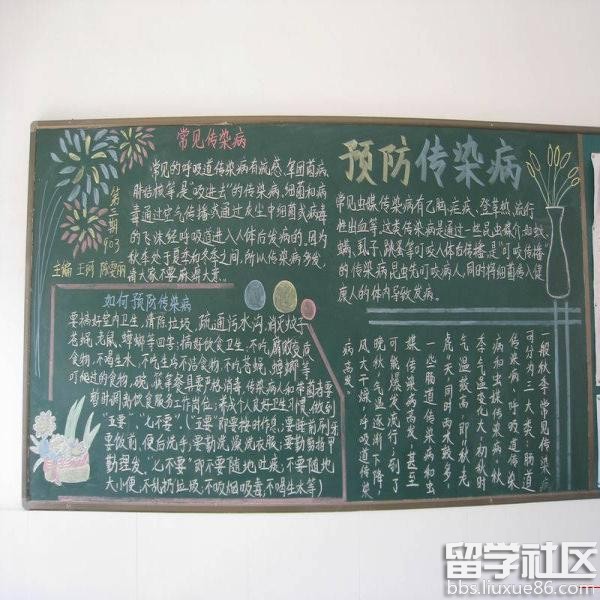 常见传染病
常见的呼吸道传染病有流感、军团菌病、
肺结核等是"吸进去"的传染病,细菌和病
毒通过空气传播或通过灰尘中细菌或病毒
的飞沫经呼吸道进入人体后发病的。因为
秋季处于夏季和冬季之间,所以传染病多发,
请大家不要麻痹大意。
第三期
903
主编
如何预防传染病
要搞好室内卫生,清除垃圾,疏通污水沟,消灭蚊子
苍蝇、老鼠、蟑螂等四害;搞好饮食卫生,不吃腐败变质
食物,不喝生水,不吃生冷不洁食物,不吃苍蝇、蟑螂等
叮爬过的食物,碗、筷等餐具要严格消毒,传染病人和带菌者要
暂时调离饮食服务工作岗位;养成个人良好卫生习惯,做到
"五要"、"七不要"。("五要"即要按时作息,要睡前刷牙
要饭前、便后洗手,要勤洗澡洗衣服,要勤剪指甲
勤理发、"七不要"即不要随地吐痰,不要随地
大小便,不乱扔垃圾,不吸烟吸毒,不喝生水等)
预防传染病
常见虫媒传染病有乙脑、疟疾、登革热、流行
性出血等,这类传染病是通过一些昆虫媒介如蚊、
螨、虱子、跳蚤等叮咬人体后传播,是"叮咬传播"
的传染病,昆虫先叮咬病人,同时将细菌为入健
康人的体内导致发病。
一般秋季常见传染病
可分为三大类:肠道
传染病、呼吸道传染
病和虫媒传染病。秋
季气温变化大,初秋时
气温较高,即"秋老
虎"天,同时雨水较多,
一些肠道传染病和虫
媒传染病高发,甚至
可能爆发流行;到了
晚秋,气温逐渐下降,
风大干燥,呼吸道传染
病高发。
留学社区
bbs.liuxue86.com